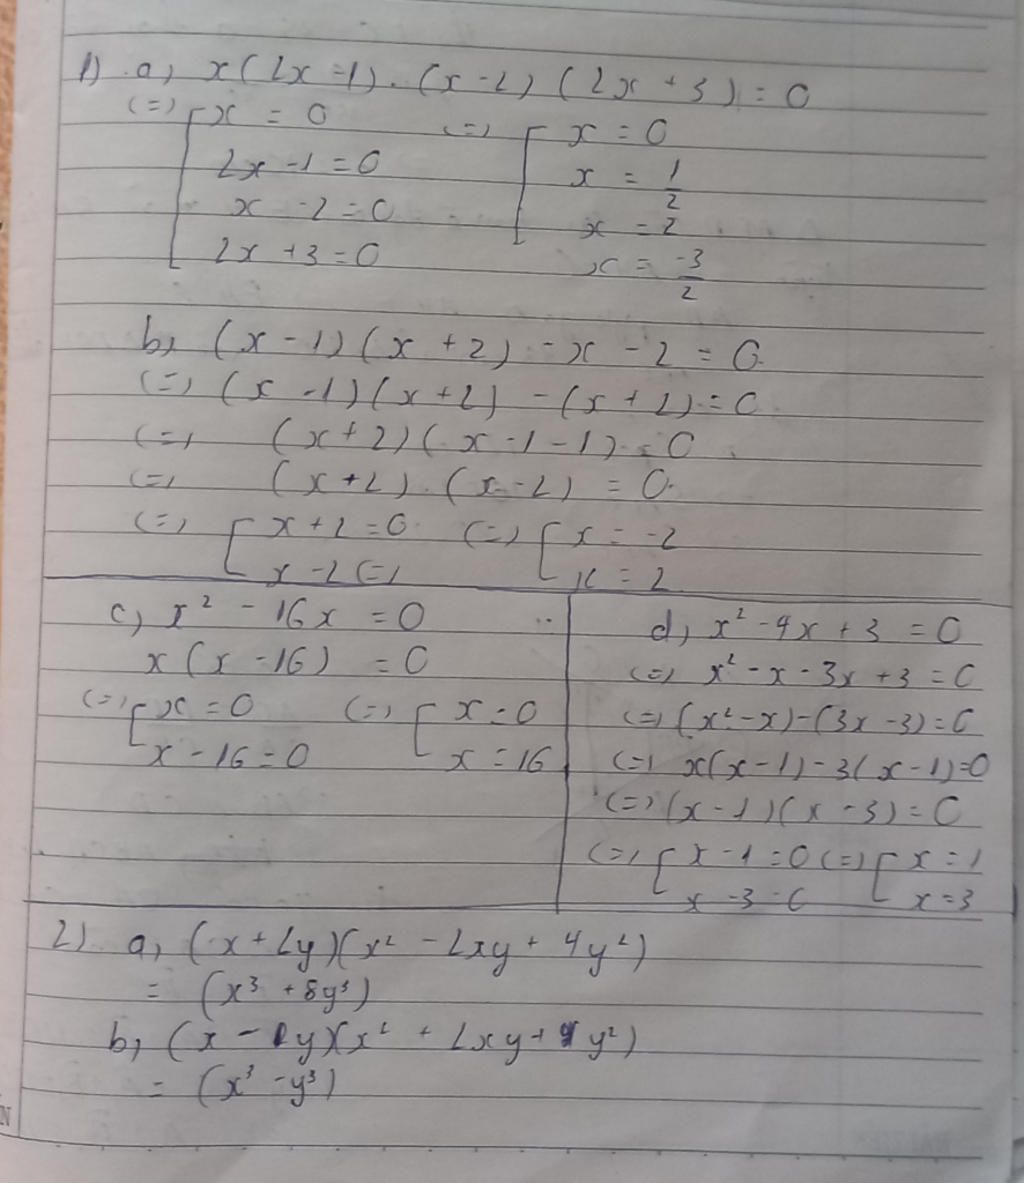 1) a, x(2x-1).(x-2)(2x+3)=0
(=) [ x = 0 (=) [ x = 0
2x-1=0 x = 1/2
x-2=0 x = 2
2x+3=0 x = -3/2
b, (x-1)(x+2)-x-2=0
(=) (x-1)(x+2)-(x+2)=0
(=) (x+2)(x-1-1)=0
(=) (x+2).(x-2)=0
(=) [ x+2=0 (=) [ x=-2
x-2 x=2
c, x²-16x=0
x(x-16)=0
(=) [ x=0 (=) [ x=0
x-16=0 x=16
d, x²-4x+3=0
(=) x²-x-3x+3=0
(=) (x²-x)-(3x-3)=0
(=) x(x-1)-3(x-1)=0
(=) (x-1)(x-3)=0
(=) [ x-1=0 (=) [ x=1
x-3=0 x=3
2) a, (x+2y)(x²-2xy+4y²)
= (x³+8y³)
b, (x- y)(x²+2xy+ y²)
= (x³-y³)